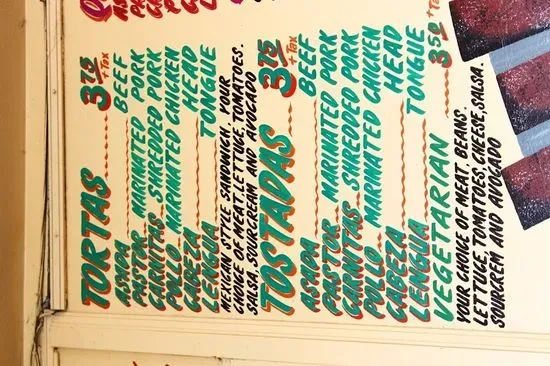 TORTAS 3.75 + Tax
ASADA BEEF
PASTOR MARINATED PORK
CARNITAS SHREDDED PORK
POLLO MARINATED CHICKEN
CABEZA HEAD
LENGUA TONGUE
MEXICAN STYLE SANDWICH, YOUR
CHOICE OF MEAT, LETTUCE, TOMATOES.
SALSA, SOURCREAM AND AVOCADO
TOSTADAS 3.75 + Tax
ASADA BEEF
PASTOR MARINATED PORK
CARNITAS SHREDDED PORK
POLLO MARINATED CHICKEN
CABEZA HEAD
LENGUA TONGUE
VEGETARIAN 3.50 + Tax
YOUR CHOICE OF MEAT, BEANS.
LETTUCE, TOMATOES, CHEESE, SALSA.
SOURCREM AND AVOCADO